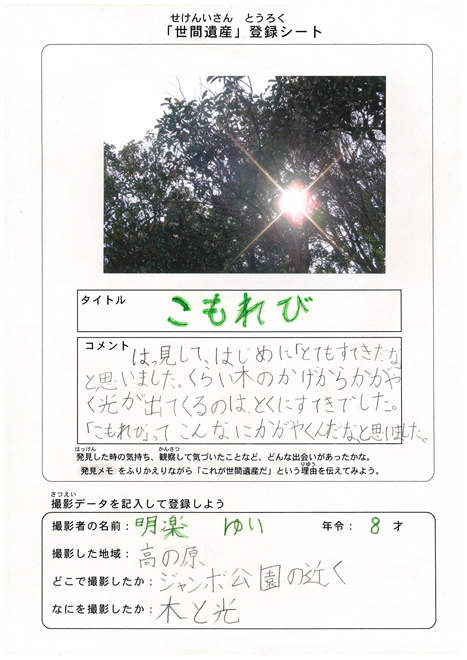 せけんいさん とうろく
「世間遺産」登録シート
タイトル
こもれび
コメント
はっ見して、はじめに「とてもすてきだな
と思いました。くらい木のかげからかがや
く光が出てくるのは、とくにすてきでした。
「こもれび」ってこんなにかがやくんだな、と思いました。
はっけん かんさつ
発見した時の気持ち、観察して気づいたことなど、どんな出会いがあったかな。
りゆう
発見メモ をふりかえりながら「これが世間遺産だ」という理由を伝えてみよう。
さつえい
撮影データを記入して登録しよう
撮影者の名前: 明楽 ゆい 年令: 8 才
撮影した地域: 高の原
どこで撮影したか: ジャンボ公園の近く
なにを撮影したか: 木と光